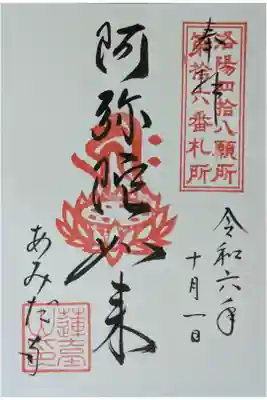 奉拝
洛陽四拾八願所
第拾六番札所
阿弥陀如来
令和六年
十月一日
あみだ寺